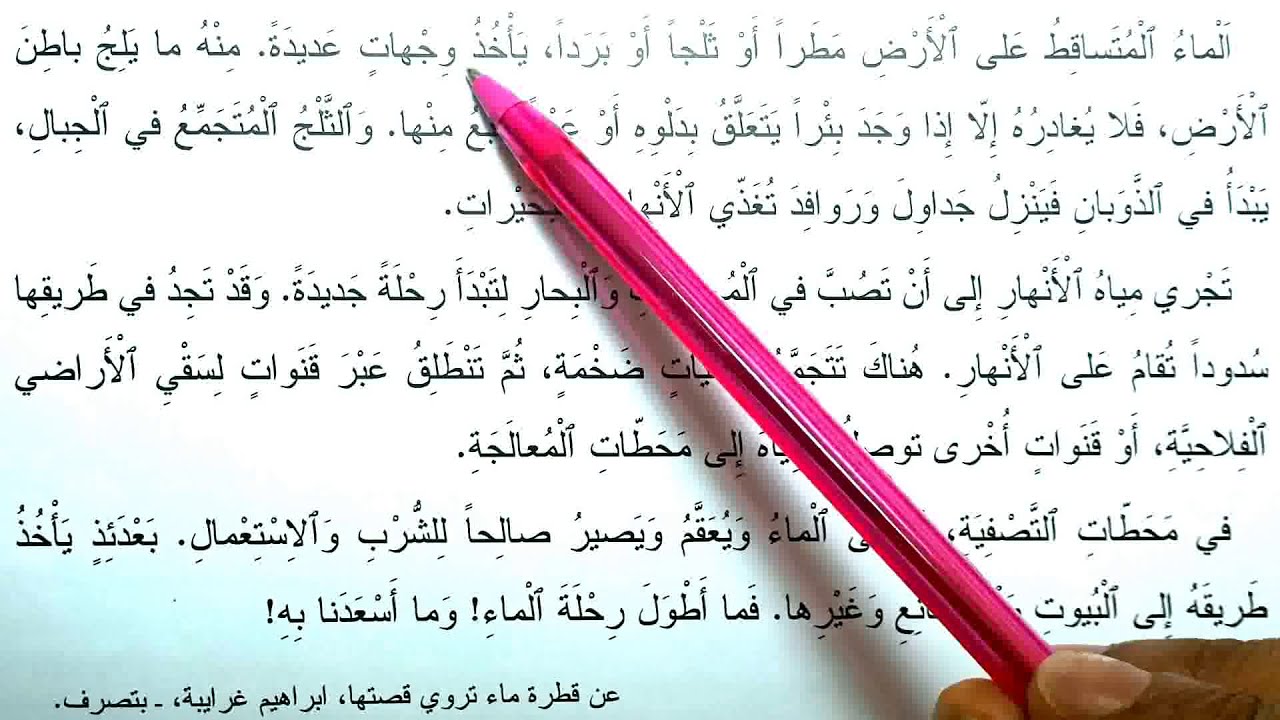 اَلْماءُ ٱلْمُتَساقِطُ عَلى ٱلْأَرْضِ مَطَراً أَوْ ثَلْجاً أَوْ بَرَداً، يَأْخُذُ وِجْهاتٍ عَديدَةً. مِنْهُ ما يَلِجُ باطِنَ
ٱلْأَرْضِ، فَلا يُغادِرُهُ إِلّا إِذا وَجَدَ بِئْراً يَتَعَلَّقُ بِدَلْوِهِ أَوْ مِنْها. وَٱلثَّلْجُ ٱلْمُتَجَمِّعُ في ٱلْجِبالِ،
يَبْدَأُ في ٱلذَّوَبانِ فَيَنْزِلُ جَداوِلَ وَرَوافِدَ تُغَذّي
تَجْري مِياهُ ٱلْأَنْهارِ إِلى أَنْ تَصُبَّ في وَٱلْبِحارِ لِتَبْدَأَ رِحْلَةً جَديدَةً. وَقَدْ تَجِدُ في طَريقِها
سُدوداً تُقامُ عَلى ٱلْأَنْهارِ. هُناكَ ضَخْمَةٍ، ثُمَّ تَنْطَلِقُ عَبْرَ قَنَواتٍ لِسَقْيِ ٱلْأَراضي
ٱلْفِلاحِيَّةِ، أَوْ قَنَواتٍ أُخْرى إِلى مَحَطّاتِ ٱلْمُعالَجَةِ.
في مَحَطّاتِ ٱلتَّصْفِيَةِ، ٱلْماءُ وَيُعَقَّمُ وَيَصيرُ صالِحاً لِلشُّرْبِ وَٱلاِسْتِعْمالِ. بَعْدَئِذٍ يَأْخُذُ
طَريقَهُ إِلى ٱلْبُيوتِ وَغَيْرِها. فَما أَطْوَلَ رِحْلَةَ ٱلْماءِ! وَما أَسْعَدَنا بِهِ!
عن قطرة ماء تروي قصتها، ابراهيم غرايبة، ـ بتصرف.